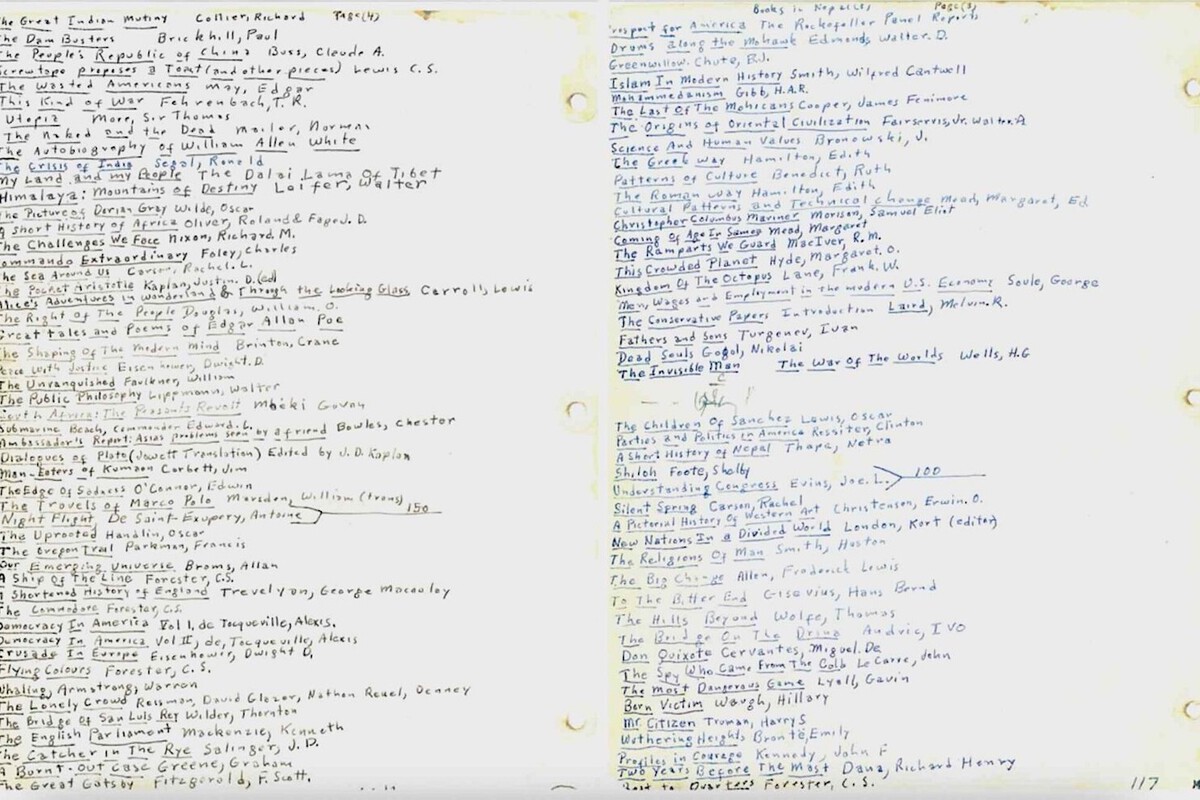 The Great Indian Mutiny Collier, Richard Page(4)
The Dam Busters Brickhill, Paul
The People's Republic of China Buss, Claude A.
Screwtape proposes a Toast (and other pieces) Lewis C.S.
The Wasted Americans May, Edgar
This Kind of War Fehrenbach, T.R.
Utopia More, Sir Thomas
The Naked and the Dead Mailer, Norman
The Autobiography of William Allen White
The Crisis of India Segal, Ronald
My Land and my People The Dalai Lama Of Tibet
Himalaya: Mountains of Destiny Leifer, Walter
The Picture of Dorian Gray Wilde, Oscar
A Short History of Africa Oliver, Roland & Fage J.D.
The Challenges We Face Nixon, Richard M.
Commando Extraordinary Foley, Charles
The Sea Around Us Carson, Rachel. L.
The Pocket Aristotle Kaplan, Justin. D. (ed)
Alice's Adventures in Wonderland & Through the Looking Glass Carroll, Lewis
The Right of The People Douglas, William. O.
Great tales and Poems of Edgar Allan Poe
The Shaping Of The Modern Mind Brinton, Crane
Peace With Justice Eisenhower, Dwight. D.
The Unvanquished Faulkner, William
The Public Philosophy Lippmann, Walter
South Africa: The Peasants Revolt Mbeki Govan
Submarine Beach, Commander Edward. L.
Ambassador's Report: Asias problems seen by a friend Bowles, Chester
Dialogues of Plato (Jowett Translation) Edited by J.D. Kaplan
Man-Eaters of Kumaon Corbett, Jim
The Edge Of Sadness O'Connor, Edwin
The Travels of Marco Polo Marsden, William (trans)
Night Flight De Saint-Exupery, Antoine 150
The Uprooted Handlin, Oscar
The Oregon Trail Parkman, Francis
Our Emerging Universe Broms, Allan
A Ship Of The Line Forester, C.S.
A Shortened History of England Trevelyan, George Macaulay
The Commodore Forester, C.S.
Democracy In America Vol I, de Tocqueville, Alexis.
Democracy In America Vol II, de, Tocqueville, Alexis
Crusade In Europe Eisenhower, Dwight D.
Flying Colours Forester, C.S.
Whaling, Armstrong, Warren
The Lonely Crowd Reisman, David Glazer, Nathan Reuel, Denney
The Bridge Of San Luis Rey Wilder, Thornton
The English Parliament Mackenzie, Kenneth
The Catcher in The Rye Salinger, J.D.
A Burnt-Out Case Greene, Graham
The Great Gatsby Fitzgerald, F. Scott.
Books in Nepal Page(3)
Prospect for America The Rockefeller Panel Reports
Drums along the Mohawk Edmonds Walter. D.
Greenwillow. Chute, B.J.
Islam In Modern History Smith, Wilfred Cantwell
Mohammedanism Gibb, H.A.R.
The Last Of The Mohicans Cooper, James Fenimore
The Origins of Oriental Civilization Fairservis, Jr. Walter. A
Science And Human Values Bronowski, J.
The Greek Way Hamilton, Edith
Patterns of Culture Benedict, Ruth
The Roman way Hamilton, Edith
Cultural Patterns and Technical change Mead, Margaret, Ed
Christopher Columbus Mariner Morison, Samuel Eliot
Coming Of Age In Samoa Mead, Margaret
The Ramparts We Guard MacIver, R.M.
This Crowded Planet Hyde, Margaret. O.
Kingdom Of The Octopus Lane, Frank. W.
Men, Wages and Employment in the modern U.S. Economy Soule, George
The Conservative Papers Introduction Laird, Melvin. R.
Fathers and Sons Turgenev, Ivan
Dead Souls Gogol, Nikolai
The Invisible Man The War Of The Worlds Wells, H.G
The Children Of Sanchez Lewis, Oscar
Parties and Politics in America Rossiter, Clinton
A Short History of Nepal Thapa, Netra
Shiloh Foote, Shelby
Understanding Congress Evins, Joe. L. 100
Silent Spring Carson, Rachel
A Pictorial History Of Western Art Christensen, Erwin. O.
New Nations In a Divided World London, Kurt (editor)
The Religions Of Man Smith, Huston
The Big Change Allen, Frederick Lewis
To The Bitter End Gisevius, Hans Bernd
The Hills Beyond Wolfe, Thomas
The Bridge On The Drina Andric, IVO
Don Quixote Cervantes, Miguel. De
The Spy Who Came From The Cold Le Carre, John
The Most Dangerous Game Lyall, Gavin
Born Victim Waugh, Hillary
Mr. Citizen Truman, Harry S
Wuthering Heights Bronte, Emily
Profiles in Courage Kennedy, John F
Two Years Before The Mast Dana, Richard Henry
Beat to Quarters Forester, C.S. 117